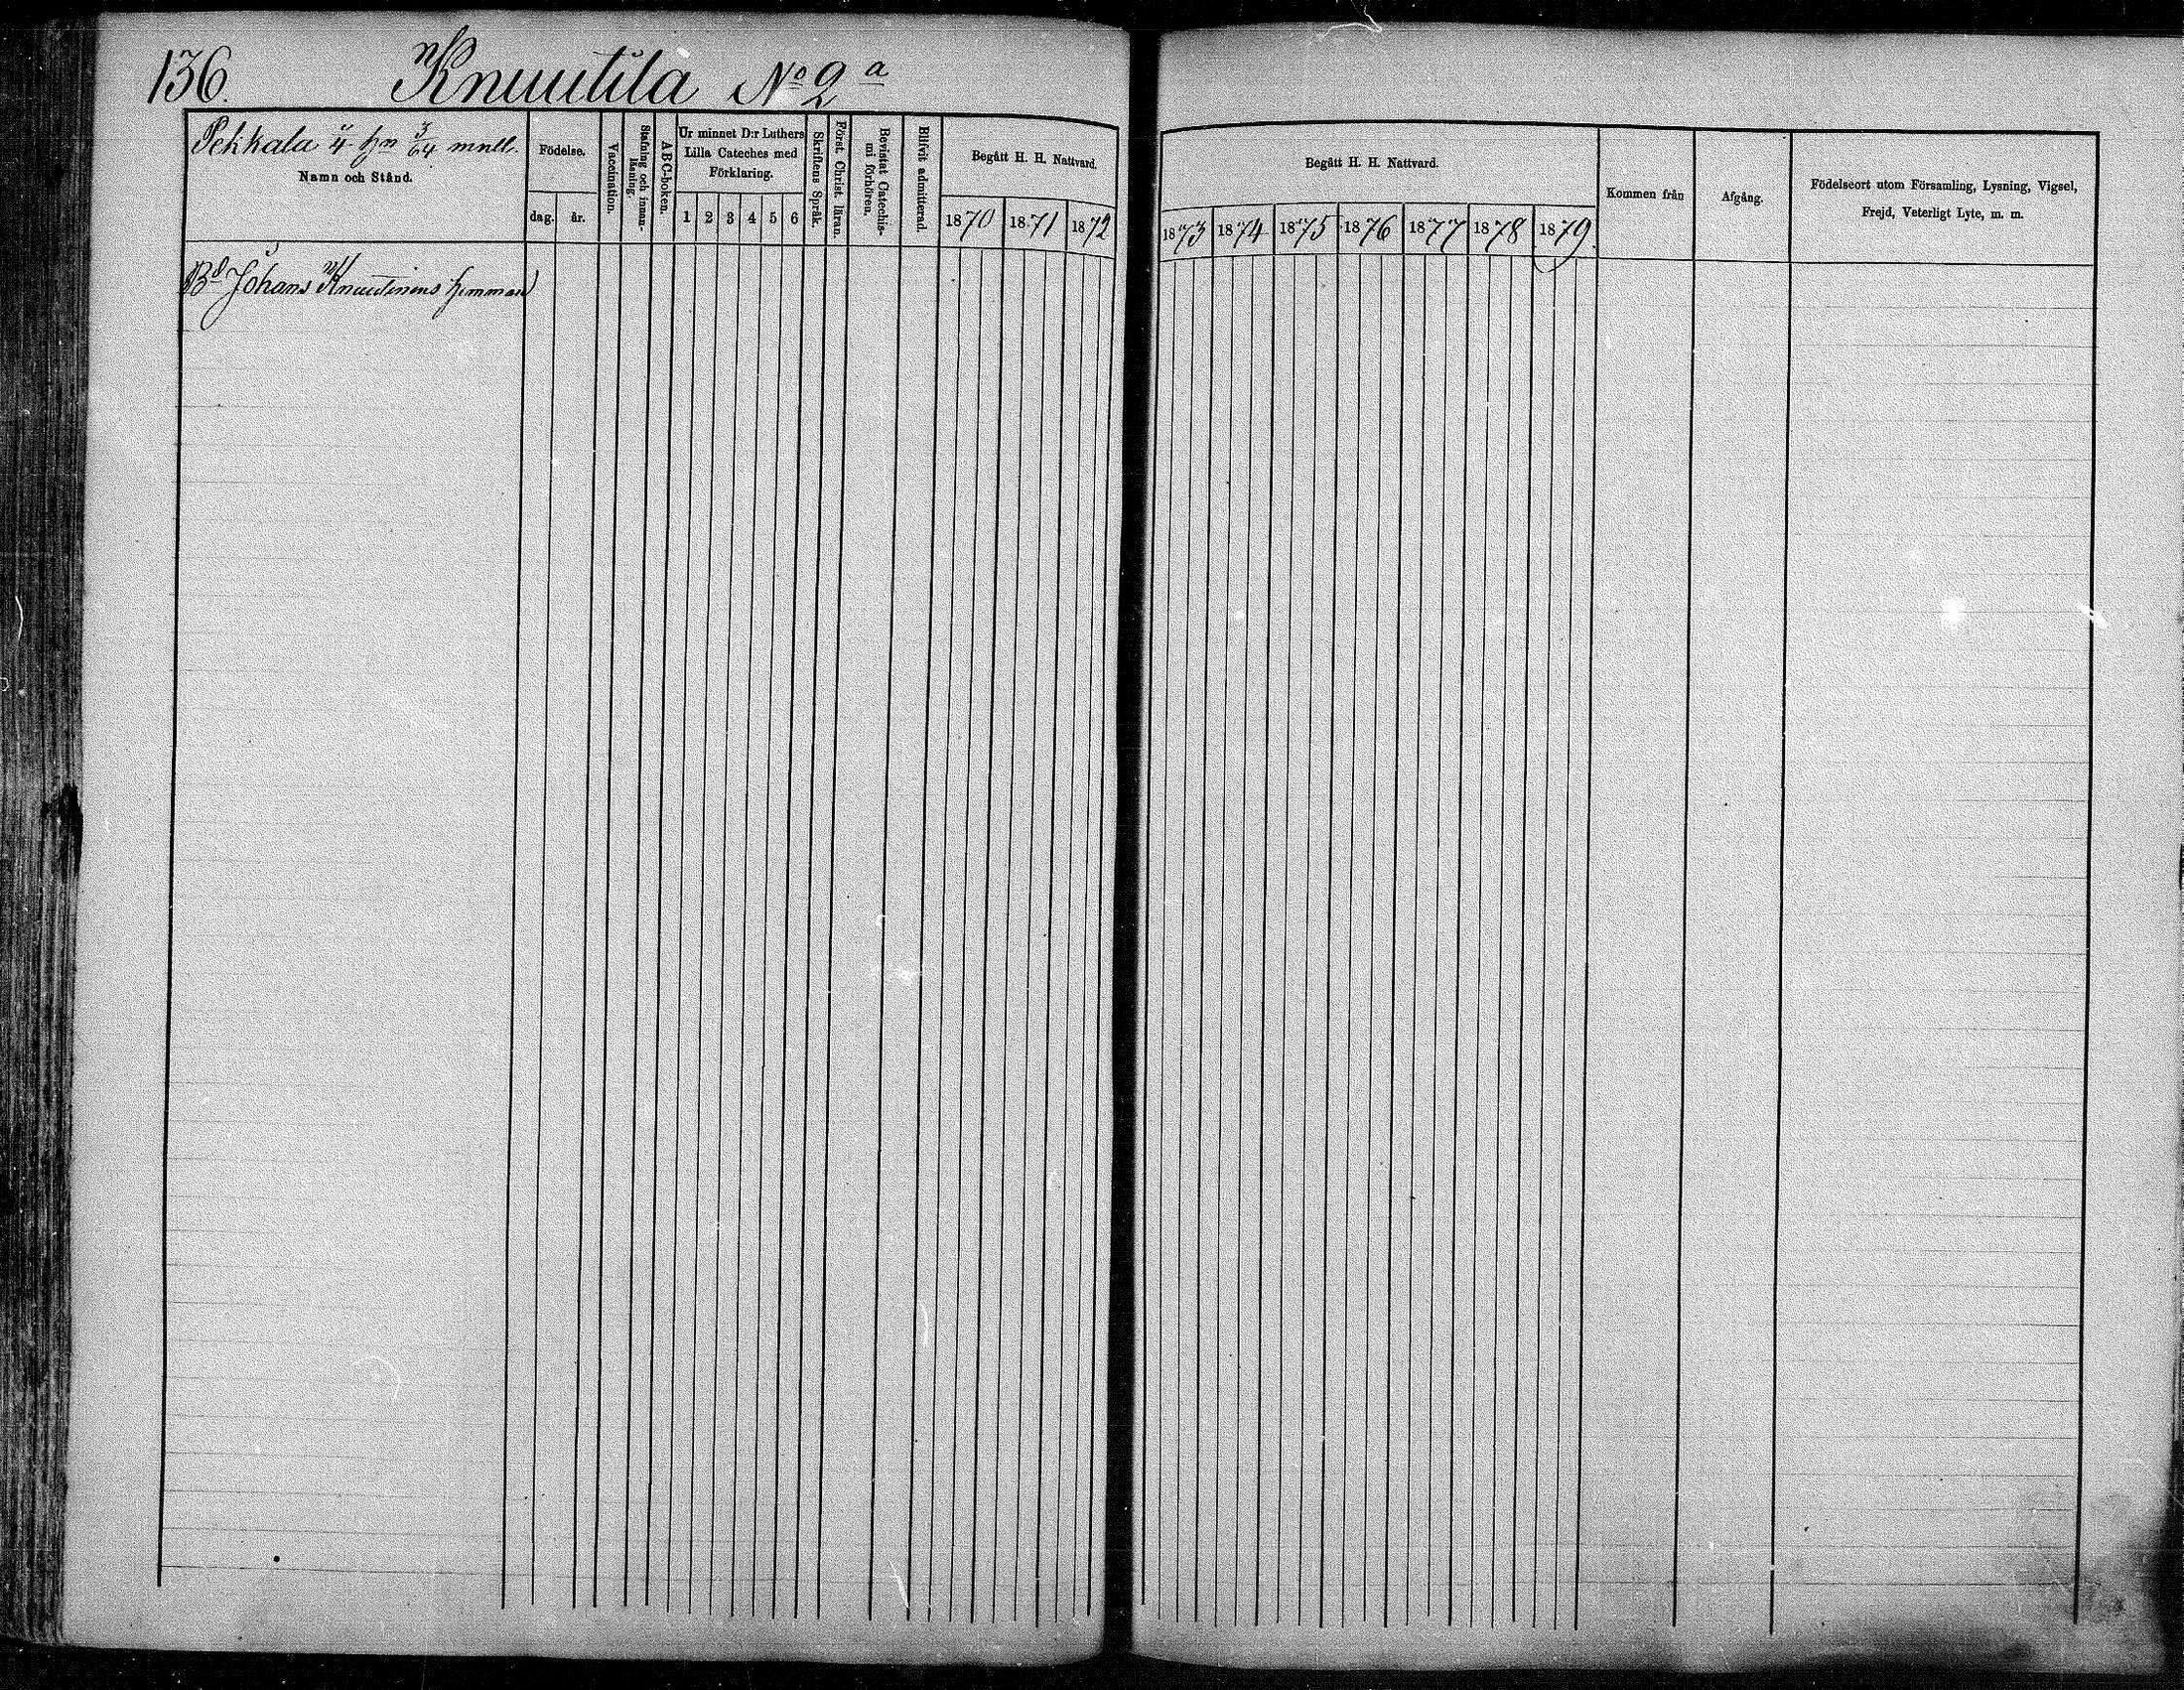 136. Knuutila No 2 a
Pekkala 4 hn 3/24 mntl.
Namn och Stånd.
Födelse.
dag. år.
Vaccination.
Stafning och innan-
läsning.
ABC-boken.
Ur minnet D:r Luthers
Lilla Cateches med
Förklaring.
1 2 3 4 5 6
Skriftens Språk.
Först. Christ. läran.
Bevistat Catechis-
mi förhören.
Blifvit admitterad.
Begått H. H. Nattvard.
1870 1871 1872
Begått H. H. Nattvard.
1873 1874 1875 1876 1877 1878 1879
Kommen från
Afgång.
Födelseort utom Församling, Lysning, Vigsel,
Frejd, Veterligt Lyte, m. m.
Bd Johans Knuutinens hemman